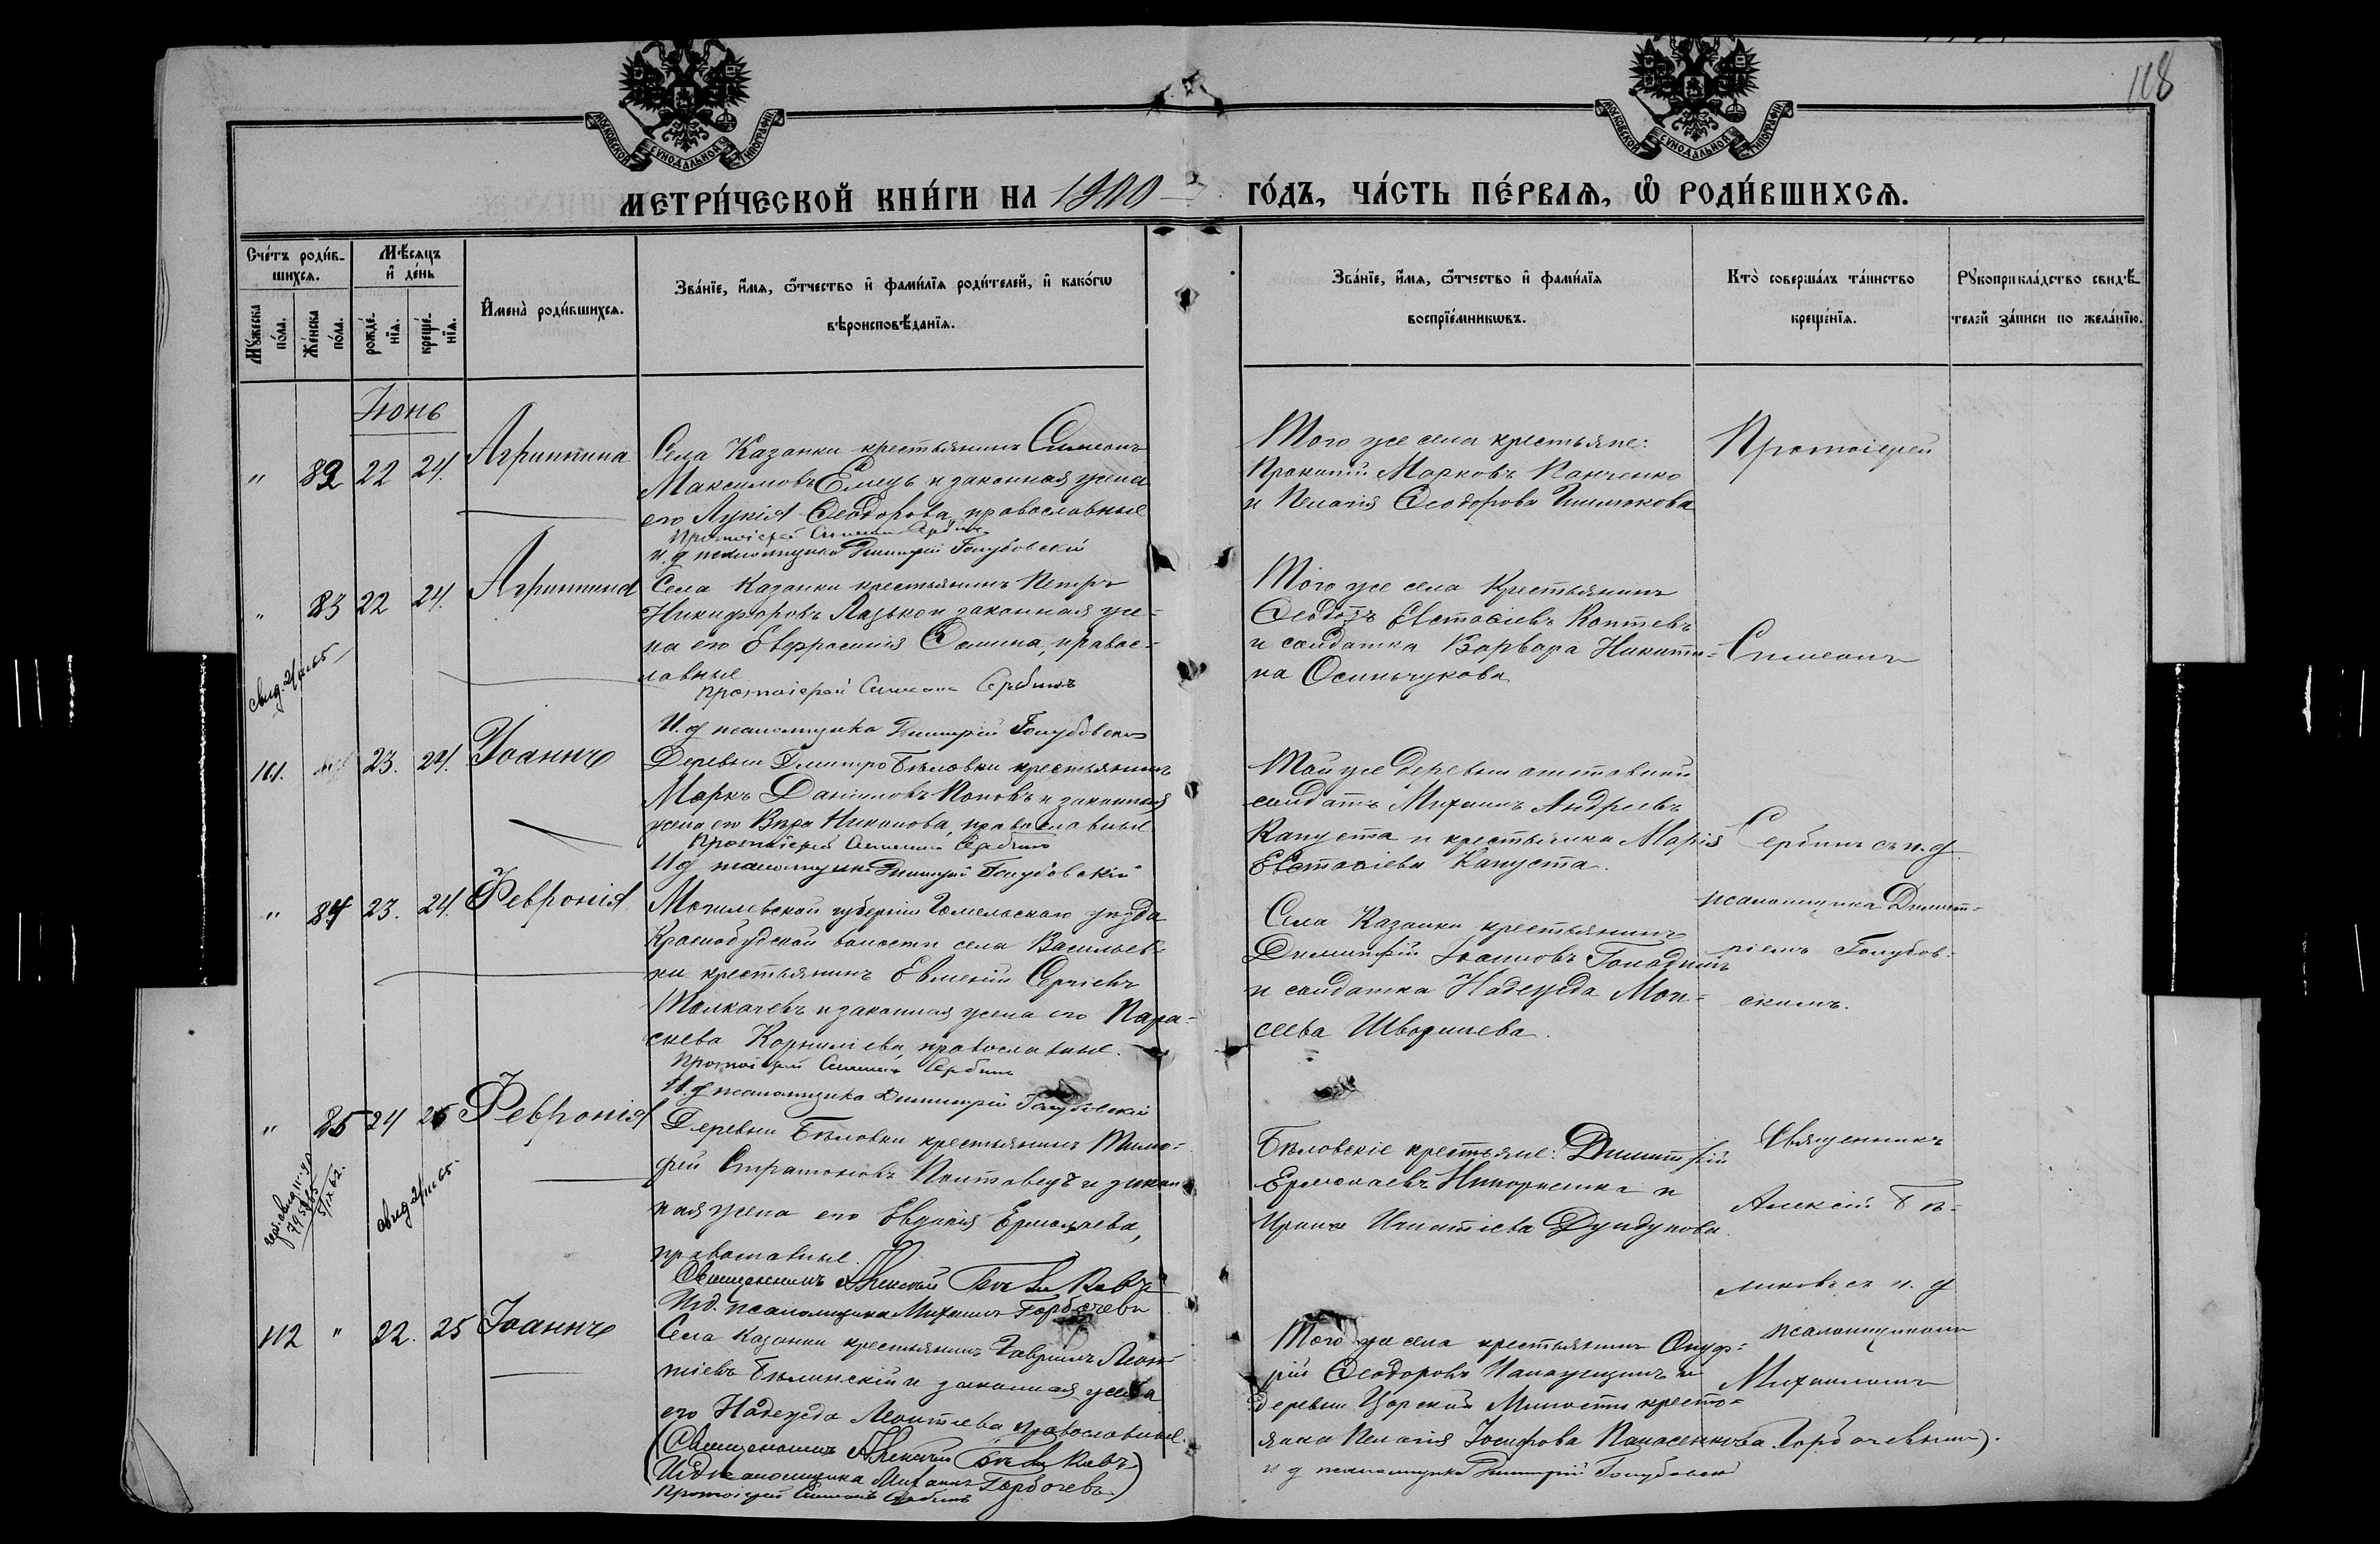 118
МОСКОВСКОЙ СУНОДАЛЬНОЙ ТИПОГРАФІИ
МОСКОВСКОЙ СУНОДАЛЬНОЙ ТИПОГРАФІИ
МЕТРИ́ЧЕСКОЙ КНИ́ГИ НА 1900
ГО́ДЪ, ЧА́СТЬ ПЕ́РВАѦ, Ѽ РОДИ́ВШИХСѦ.
Сче́тъ роди́в-
шихсѧ.
Мꙋ́жеска
по́ла.
Же́нска
по́ла.
Мѣ́сѧцъ
и҆ де́нь
рожде́-
нїѧ.
креще́-
нїѧ.
И҆мена̀ роди́вшихсѧ.
Зва́нїе, и҆́мѧ, ѻ҆́тчество и҆ фами́лїѧ роди́телей, и҆ како́гѡ
вѣроисповѣ́данїѧ.
Зва́нїе, и҆́мѧ, ѻ҆́тчество и҆ фами́лїѧ
воспрїе́мникѡвъ.
Кто̀ соверша́лъ та́инство
креще́нїѧ.
Рꙋкоприкла́дство свидѣ́-
телей за́писи по жела́нїю.
Іюнь
" 82 22 24. Агриппина
Села Казанки крестьянинъ Симеонъ
Максимовъ Емецъ и законная жена
его Лукія Ѳеодорова, православные
Протоіерей Симеонъ Сербинъ
И. д псаломщика Димитрій Голубовскій
Того же села крестьяне:
Прокопій Марковъ Панченко
и Пелагія Ѳеодорова
Протоіерей
" 83 22 24. Агриппина
Села Казанки крестьянинъ Петръ
Никифоровъ Лазько и законная же-
на его Евфросинія Сомина, правос-
лавные
Протоіерей Симеонъ Сербинъ
И. д псаломщика Димитрій Голубовскій
Того же села крестьянинъ
Ѳеодотъ Евстаѳіевъ Коптевъ
и солдатка Варвара Никити-
на Осипчукова
Симеонъ
101. 23. 24. Іоаннъ
Деревни Дмитро Бѣловки крестьянинъ
Маркъ Даніиловъ Поповъ и законная
жена его Вѣра Никонова, православные
Протоіерей Симеонъ Сербинъ
И д псаломщика Димитрій Голубовскій
Той же деревни отставной
солдатъ Михаилъ Андреевъ
Капуста и крестьянка Марія
Евстаѳіева Капуста.
Сербинъ съ и. д.
" 84 23. 24. Февронія
Могилевской губерніи Гомельскаго уѣзда
Краснобудской волости села Васильев-
ки крестьянинъ Евменій Сергіевъ
Толкачевъ и законная жена его Пара-
скева Корниліева, православные.
Протоіерей Симеонъ Сербинъ
И. д псаломщика Димитрій Голубовскій
Села Казанки крестьянинъ
Димитрій Іоанновъ
и солдатка Надежда Мои-
сеева
псаломщика Димит-
ріемъ Голубов-
скимъ.
" 85 24 25 Февронія
Деревни Бѣловки крестьянинъ Тимо-
фей Стратоновъ Полтавецъ и закон-
ная жена его Евдокія Ермолаева,
православные.
Священникъ Алексѣй Бѣликовъ
И.д. псаломщика Михаилъ Горбачевъ
Бѣловскіе крестьяне: Димитрій
Ермолаевъ и
Ирина Игнатіева Дундукова
Священникъ
Алексій Бѣ-
ликовъ съ и. д
112 " 22. 25 Іоаннъ
Села Казанки крестьянинъ Гавріилъ Леон-
тіевъ Бѣлинскій и законная жена
его Надежда Леонтіева православные.
(Священникъ Алексѣй Бѣликовъ
И.д. псаломщика Михаилъ Горбачевъ)
Протоіерей Симеонъ Сербинъ
Того же села крестьянинъ Онуф-
рій Ѳеодоровъ и
деревни Царской Милости кресть-
янка Пелагія Іосифова Панасенкова
псаломщикомъ
Михаиломъ
Горбачевымъ).
и д псаломщика Димитрій Голубовскій